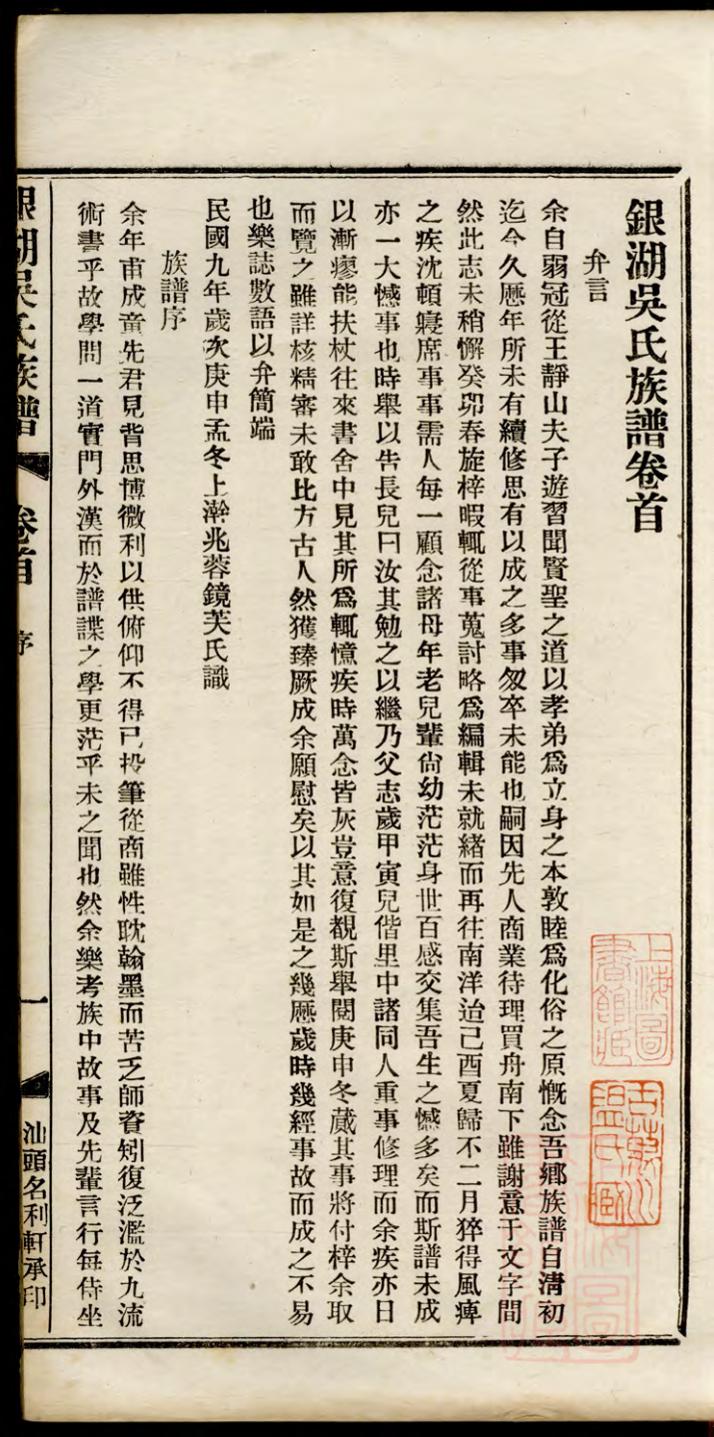 銀湖吳氏族譜卷首
弁言
余自弱冠從王靜山夫子遊習聞賢聖之道以孝弟爲立身之本敦睦爲化俗之原慨念吾鄉族譜自清初
迄今久懕年所未有續修思有以成之多事匆卒未能也嗣因先人商業待理買舟南下雖謝意于文字間
然此志未稍懈癸卯春旋梓暇輒從事蒐討略爲編輯未就緒而再往南洋迨己酉夏歸不二月猝得風痺
之疾沈頓寢席事事需人每一顧念諸母年老兒輩尙幼茫茫身世百感交集吾生之憾多矣而斯譜未成
亦一大憾事也時舉以告長兒曰汝其勉之以繼乃父志歲甲寅兒偕里中諸同人重事修理而余疾亦日
以漸瘳能扶杖往來書舍中見其所爲輒憶疾時萬念皆灰豈意復覩斯舉閱庚申冬蕆其事將付梓余取
而覽之雖詳核精審未敢比方古人然獲臻厥成余願慰矣以其如是之幾懕歲時幾經事故而成之不易
也樂誌數語以弁簡端
民國九年歲次庚申孟冬上澣兆蓉鏡芙氏識
族譜序
余年甫成童先君見背思博微利以供俯仰不得已投筆從商雖性耽翰墨而苦乏師資矧復泛濫於九流
術書乎故學問一道實門外漢而於譜諜之學更茫乎未之聞也然余樂考族中故事及先輩言行每侍坐
銀湖吳氏族譜
卷首
序
一
汕頭名利軒承印
上海圖書館藏